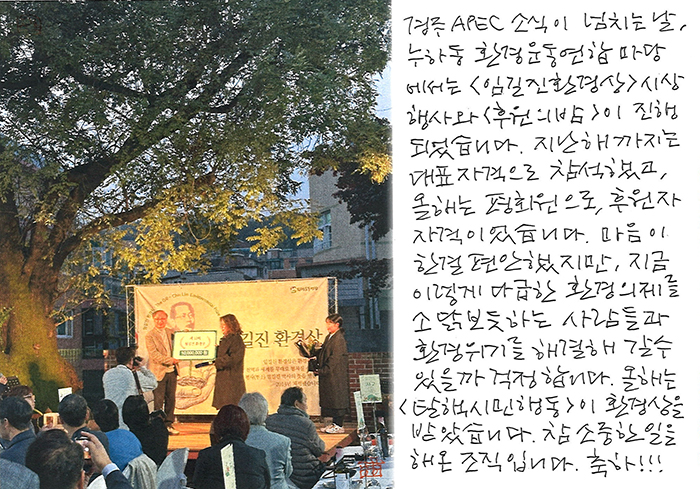 경주 APEC 소식이 넘치는 날,
누하동 환경운동연합 마당
에서는 <임길진환경상> 시상
행사와 <후원의밤>이 진행
되었습니다. 지난해까지는
대표자격으로 참석했고,
올해는 평회원으로, 후원자
자격이었습니다. 마음이
한결 편안했지만, 지금
이렇게 다급한 환경의제를
소 닭보듯하는 사람들과
환경위기를 해결해 갈수
있을까 걱정합니다. 올해는
<탈핵시민행동>이 환경상을
받았습니다. 참 소중한일을
해온 조직입니다. 축하!!!
길진 환경상